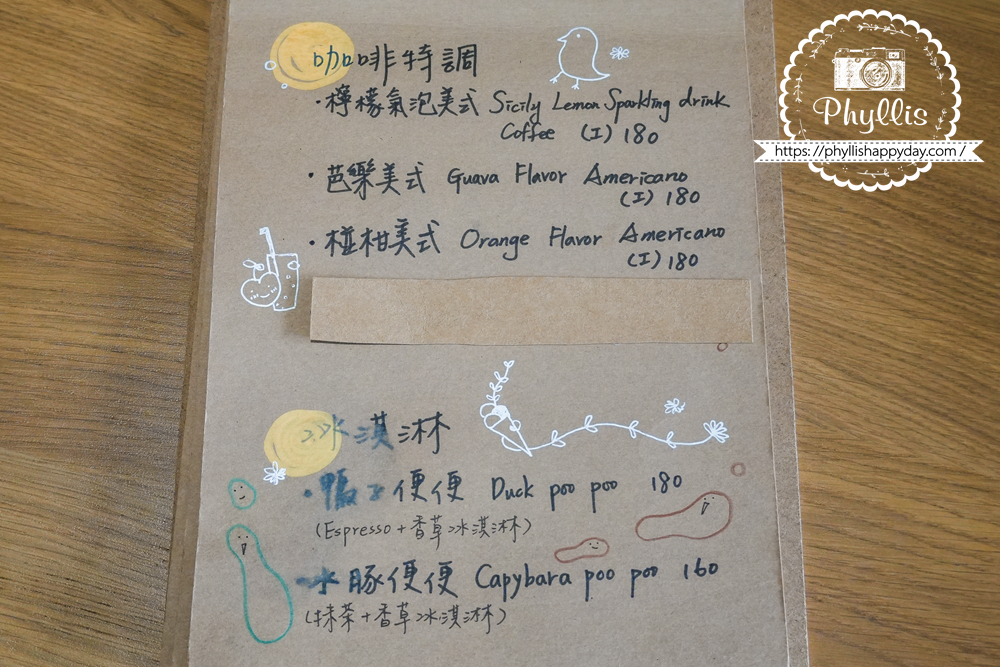 咖啡特調
·檸檬氣泡美式 Sicily Lemon Sparkling drink
Coffee (I) 180
·芭樂美式 Guava Flavor Americano
(I) 180
·椪柑美式 Orange Flavor Americano
(I) 180
冰淇淋
·鴨子便便 Duck poo poo 180
(Espresso+香草冰淇淋)
·水豚便便 Capybara poo poo 160
(抹茶+香草冰淇淋)
Phyllis
https://phyllishappyday.com/